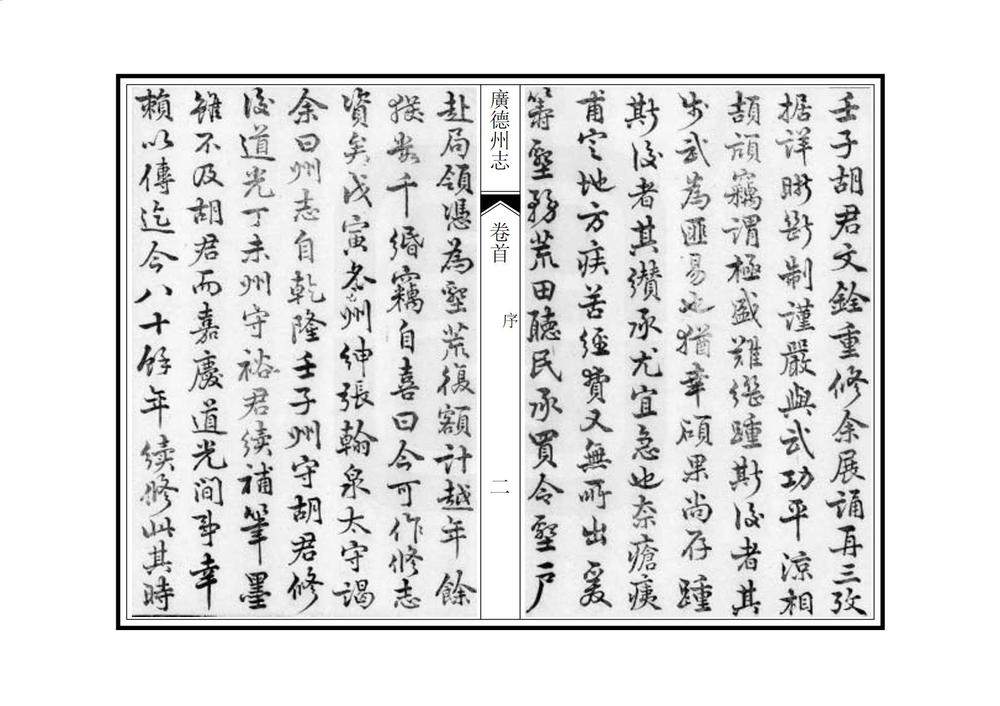 壬子胡君文銓重修余展誦再三攷
据詳晰斷制謹嚴與武功平涼相
頡頏竊謂極盛難繼踵斯後者其
步武為匪易也猶幸碩果尚存踵
斯後者其纘承尤宜急也奈瘡痍
甫定地方疾苦經費又無所出爰
籌墾務荒田聽民承買令墾戶
廣德州志
卷首
序
二
赴局領憑為墾荒復額計越年餘
獲數千緡竊自喜曰今可作修志
資矣戊寅冬州紳張翰泉太守謁
余曰州志自乾隆壬子州守胡君修
後道光丁未州守裕君續補筆墨
雖不及胡君而嘉慶道光間事幸
賴以傳迄今八十餘年續修此其時